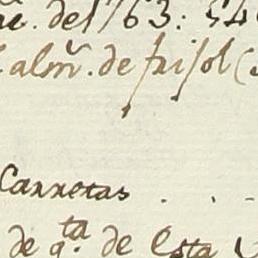 del 763: 54
alm̃. de frisol (
Carretas . . -
de q.ta de Esta